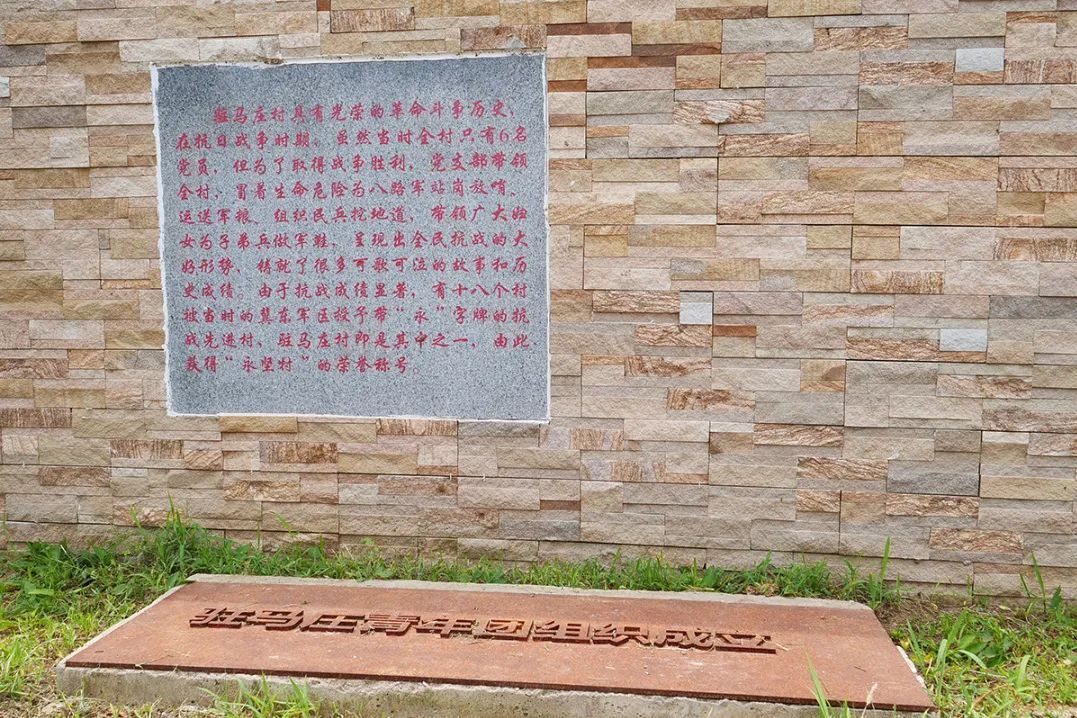 驻马庄村具有光荣的革命斗争历史，
在抗日战争时期。虽然当时全村只有6名
党员，但为了取得战争胜利，党支部带领
全村，冒着生命危险为八路军站岗放哨、
运送军粮、组织民兵挖地道，带领广大妇
女为子弟兵做军鞋，呈现出全民抗战的大
好形势，铸就了很多可歌可泣的故事和历
史成绩。由于抗战成绩显著，有十八个村
被当时的冀东军区授予带“永”字牌的抗
战先进村、驻马庄村即是其中之一，由此
获得“永坚村”的荣誉称号。
驻马庄青年团组织成立